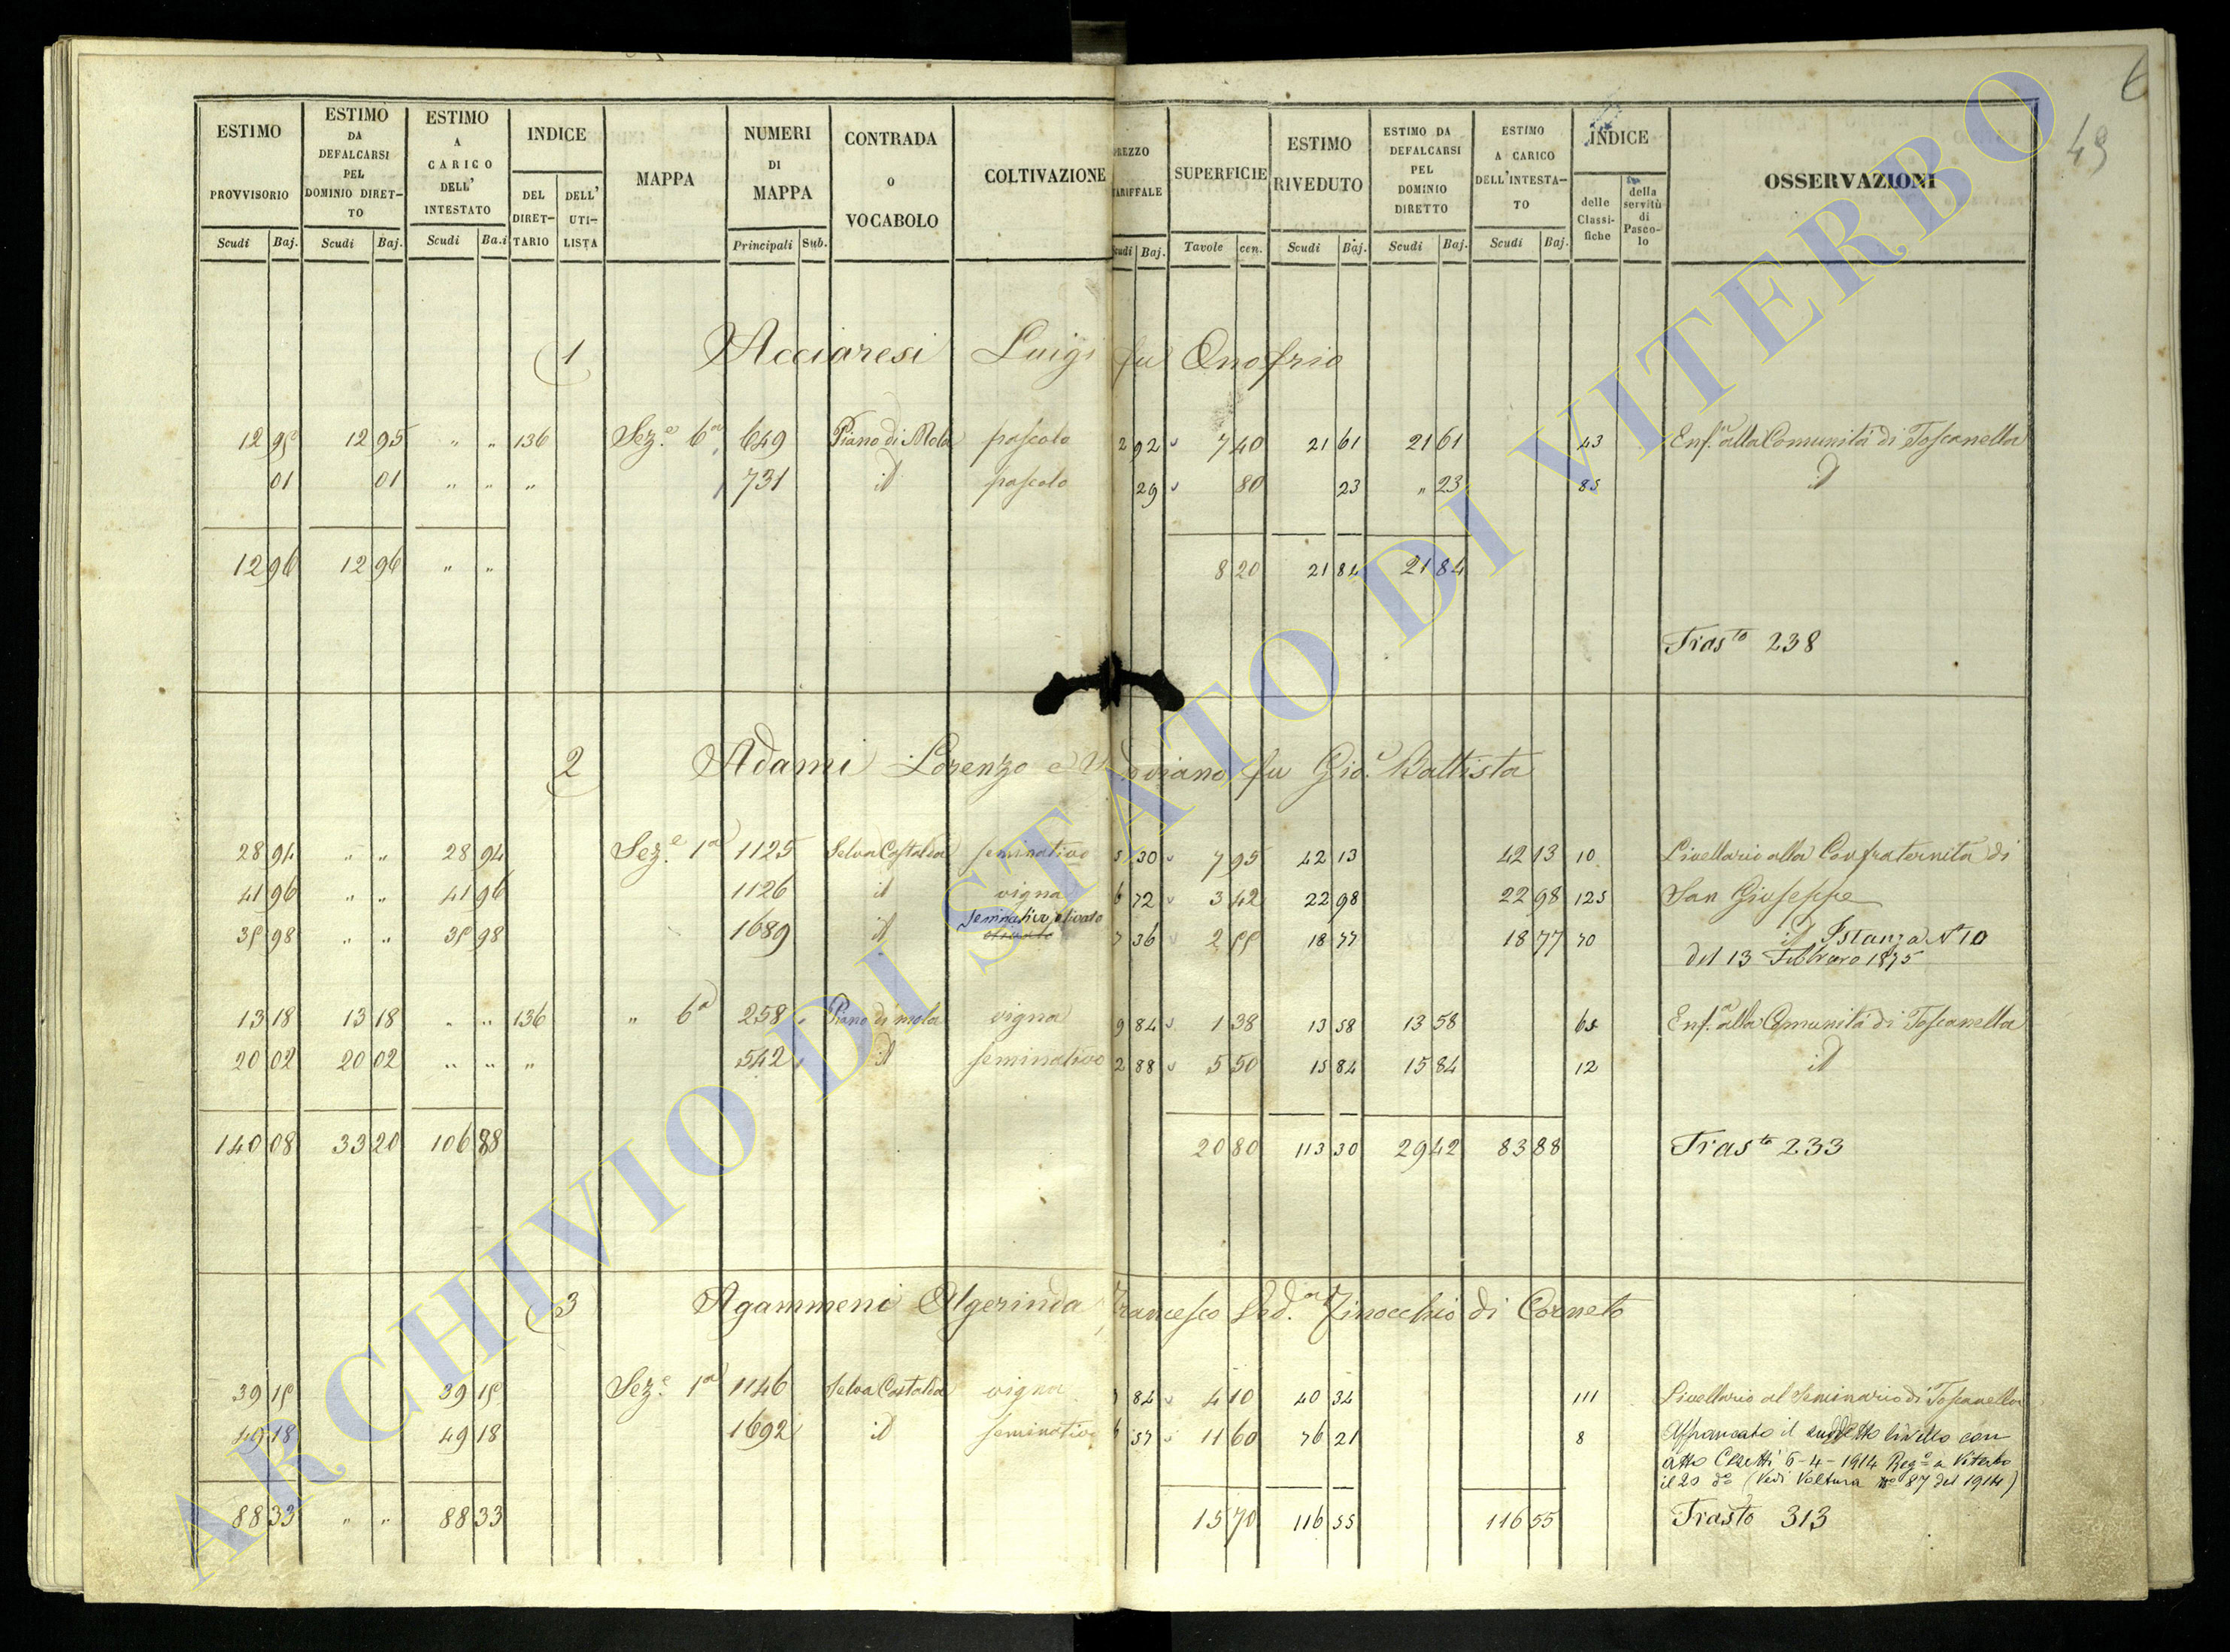 6
49
ESTIMO PROVVISORIO Scudi Baj. ESTIMO DA DEFALCARSI PEL DOMINIO DIRETTO Scudi Baj. ESTIMO A CARICO DELL' INTESTATO Scudi Ba.i INDICE DEL DIRETTARIO DELL' UTILISTA MAPPA NUMERI DI MAPPA Principali Sub. CONTRADA O VOCABOLO COLTIVAZIONE PREZZO TARIFFALE Scudi Baj. SUPERFICIE Tavole cen. ESTIMO RIVEDUTO Scudi Baj. ESTIMO DA DEFALCARSI PEL DOMINIO DIRETTO Scudi Baj. ESTIMO A CARICO DELL'INTESTATO Scudi Baj. INDICE delle Classifiche della servitù di Pascolo OSSERVAZIONI
1 Acciaresi Luigi fu Onofrio
12 95 12 95 " " 136 Sez.e 6a 649 Piano di Mola pascolo 2 92 7 40 21 61 21 61 43 Enf.a alla Comunità di Toscanella
01 01 " " " 731 id pascolo 29 80 23 " 23 85 id
12 96 12 96 " " 8 20 21 84 21 84
Tras.to 238
2 Adami Lorenzo e fu Gio. Battista
28 94 " " 28 94 Sez.e 1a 1125 Selva Castalda seminativo 5 30 7 95 42 13 42 13 10 Livellario alla Confraternita di
41 96 " " 41 96 1126 id vigna 6 72 3 42 22 98 22 98 125 San Giuseppe
35 98 " " 35 98 1689 id seminativo olivato 7 36 2 55 18 77 18 77 70 id Istanza N° 10
del 13 Febbraro 1875
13 18 13 18 " " 136 " 6a 258 Piano di mola vigna 9 84 1 38 13 58 13 58 65 Enf.a alla Comunità di Toscanella
20 02 20 02 " " " 542 id seminativo 2 88 5 50 15 84 15 84 12 id
140 08 33 20 106 88 20 80 113 30 29 42 83 88 Tras.to 233
3 Agammeni Algerinda Francesco Ved.a Finocchio di Corneto
39 15 39 15 Sez.e 1a 1146 Selva Castalda vigna 9 84 4 10 40 34 111 Livellario al Seminario di Toscanella
49 18 49 18 1692 id seminativo 6 57 11 60 76 21 8 Affrancato il suddetto livello con
atto Cesetti 6-4-1914 Reg.o a Viterbo
il 20 do (Vedi Voltura no 87 del 1914)
88 33 " " 88 33 15 70 116 55 116 55 Trasto 313
ARCHIVIO DI STATO DI VITERBO